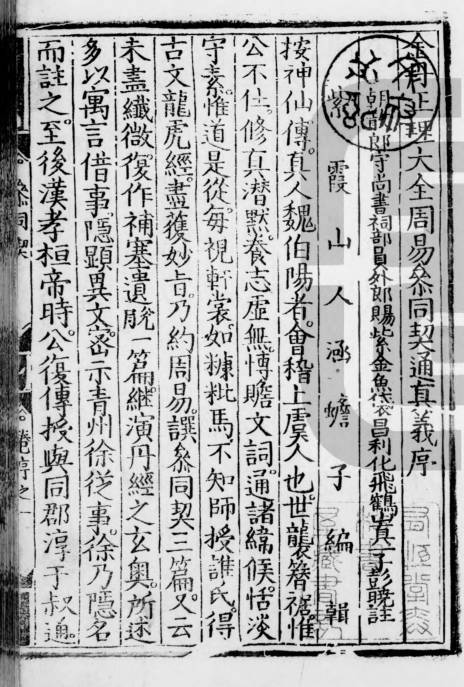 金丹正理大全周易參同契通真義序
朝散郎守尚書祠部員外郎賜紫金魚袋昌利化飛鶴山真一子彭曉註
紫霞山人涵蟾子編輯
按神仙傳。真人魏伯陽者。會稽上虞人也。世襲簪裾。惟
公不仕。修真潜黙。養志虛無。博贍文詞。通諸緯候。恬淡
守素。惟道是從。每視軒裳。如糠粃焉。不知師授誰氏。得
古文龍虎經。盡獲妙旨。乃約周易。譔參同契三篇。又云
未盡纖微。復作補塞遺脫一篇。繼演丹經之玄奧。所述
多以寓言借事。隱顯異文。密示青州徐從事。徐乃隱名
而註之。至後漢孝桓帝時。公復傳授與同郡淳于叔通。
參同契